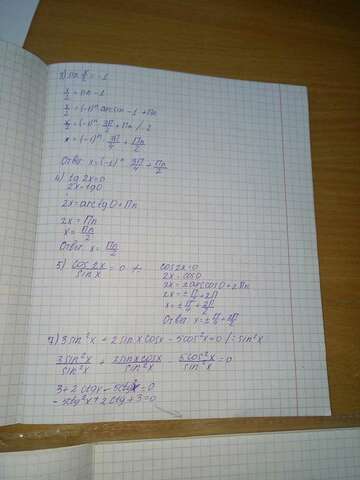 3) sin x/2 = -1
x/2 = Πn - 1
x/2 = (-1)ⁿ arcsin - 1 + Πn
x/2 = (-1)ⁿ · 3Π/2 + Πn / ·2
x = (-1)ⁿ · 3Π/4 + Πn/2
Ответ x = (-1)ⁿ · 3Π/4 + Πn/2
4) tg 2x = 0
2x = tg 0
2x = arctg 0 + Πn
2x = Πn
x = Πn/2
Ответ x = Πn/2
5) cos 2x / sin x = 0
cos 2x = 0
2x = cos 0
2x = ± arccos 0 + 2Πn
7) 3sin²x + 2sinx cosx - 5cos²x = 0 /: sin²x
3sin²x/sin²x + 2sinx cosx/sin²x - 5cos²x/sin²x = 0
3 + 2ctgx - 5ctg²x = 0
- 5ctg²x + 2ctg + 3 = 0